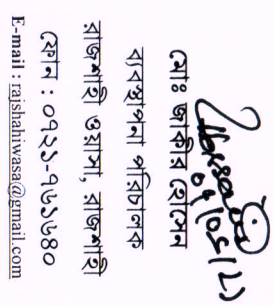 মোঃ জাকীর হোসেন
ব্যবস্থাপনা পরিচালক
রাজশাহী ওয়াসা, রাজশাহী
ফোন : ০৭২১-৭৬১৬৪০
E-mail : rajshahiwasa@gmail.com